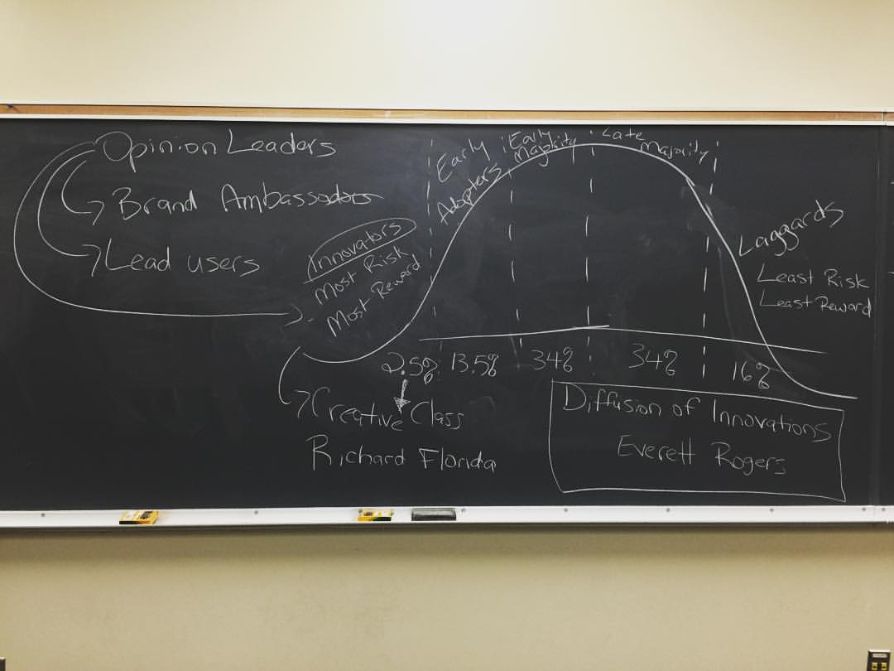 Opinion Leaders
Brand Ambassadors
Lead users
Innovators
Most Risk
Most Reward
Early
Adopters
Early
Majority
Late
Majority
Laggards
Least Risk
Least Reward
2.5% 13.5% 34% 34% 16%
Creative Class
Richard Florida
Diffusion of Innovations
Everett Rogers